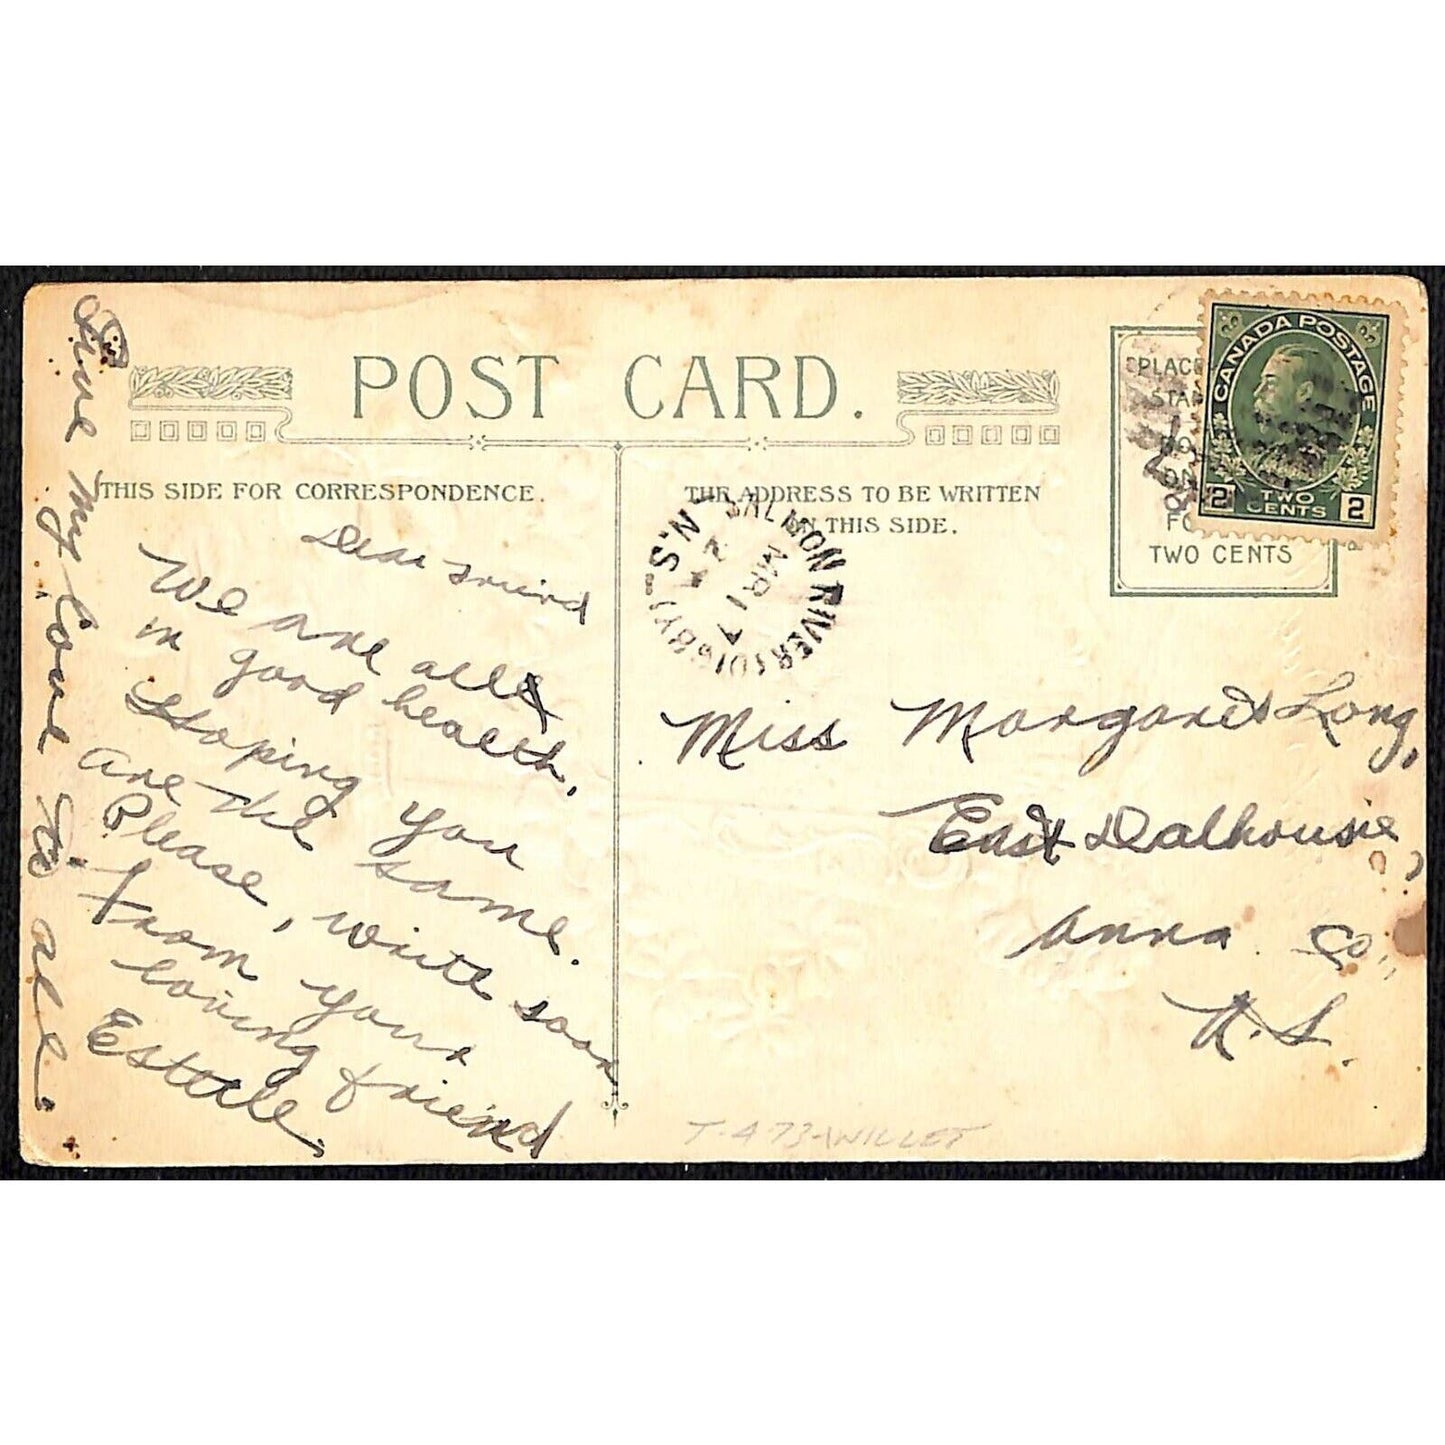 POST CARD.
THIS SIDE FOR CORRESPONDENCE.
THE ADDRESS TO BE WRITTEN
ON THIS SIDE.
PLACE
STA
FO
TWO CENTS
CANADA POSTAGE
2 TWO CENTS 2
SALMON RIVER (DIGBY) N.S.
MR 17
Dear Friend
We are all
in good health,
Hoping you
are the same.
Please, write soon
From your
loving friend
Estelle,
Give my love to all.
Miss Margaret Long,
East Dalhousie,
Anna. Co,,
N.S.
T-473-WILLET